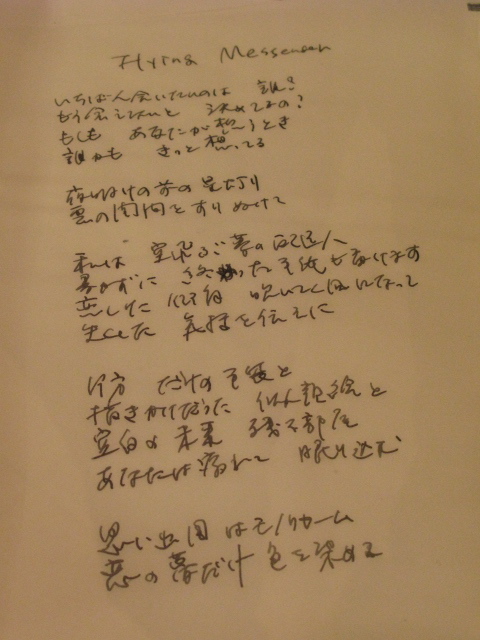 Flying Messenger
いちばん会いたいのは 誰?
もう会えないと 決めてるの?
もしも あなたが想うとき
誰かも きっと 想ってる
夜明けの前の星灯り
雲の隙間をすりぬけて
私は 空飛ぶ夢の配達人
書かずに 終わった手紙を届けます
恋しい 口笛 吹いて 風になって
なくした 気持を伝えに
片方 だけの手袋と
描きかけだった 似顔絵と
空白の 未来 残る部屋
あなたは疲れて 眠り込む
思い出 は モノクローム
恋の夢だけ 色を染める